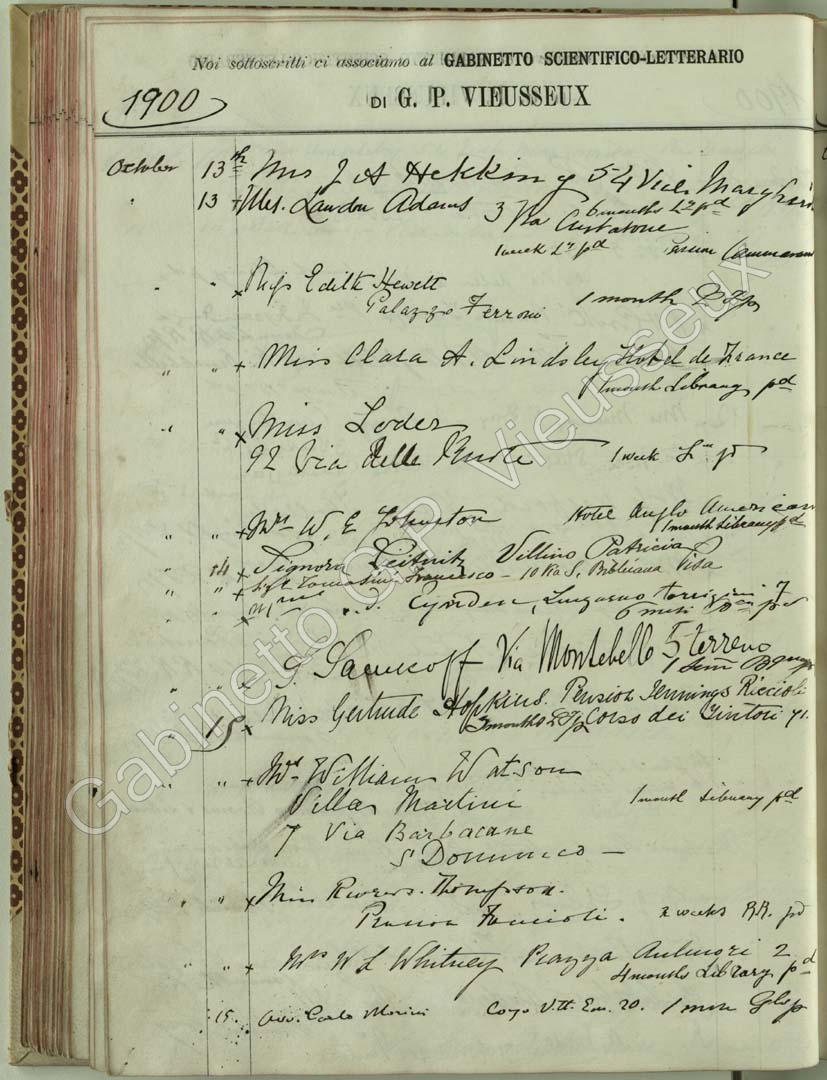 Noi sottoscritti ci associamo al GABINETTO SCIENTIFICO-LETTERARIO
1900
DI G. P. VIEUSSEUX
October 13th Mrs J A Hekking 54 Viale Margherita
" 13 + Mrs. Landon Adams 3 Via Curtatone
6 months Ly pd
1 week Ly pd Pension
" " x Miss Edith Hewett
Palazzo Ferroni 1 month
" " + Miss Clara A. Lindsley Hotel de France
1 month Library pd
" " x Miss Loder
92 Via delle Ruote 1 week Ly pd
" " + Mrs W. E. Johnston Hotel Anglo American
1 month Library pd
" 14 + Signora Villino Patricia
" " + Francesco - 10 Via S. Bibbiana Pisa
" " x Lungarno Torrigiani 7
6 mesi
" " x Via Montebello 5 terreno
1 Sem
" 15 x Miss Gertrude Hopkins. Pension Jennings Riccioli
3 months Corso dei Tintori 41.
" " + Mrs William Watson
Villa Martini 1 month Library pd
7 Via Barbacane
S Domenico —
" " x Miss Rivers. Thompson.
Pension Faccioli. 2 weeks RR. pd
" " + Mrs W L Whitney Piazza 2
4 months Library pd
15. Avv. Carlo Corso Vitt. Em. 20. 1 mese
Gabinetto G.P. Vieusseux